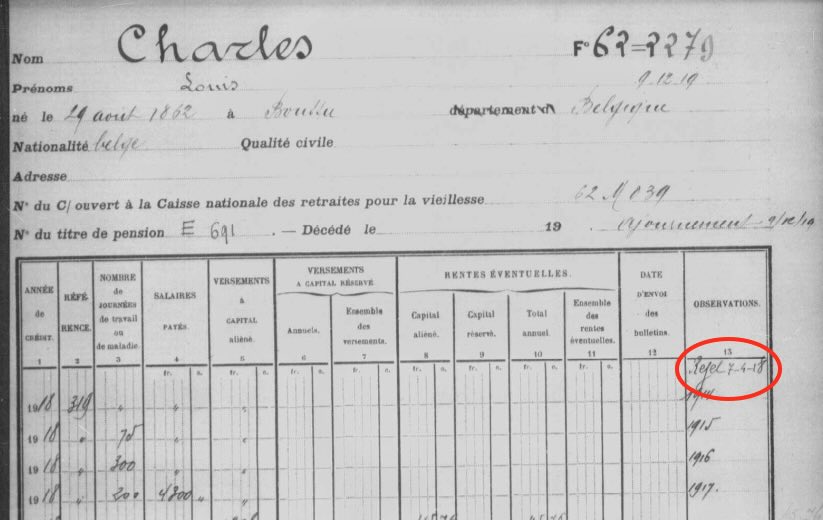 Nom Charles F° 62=2279
Prénoms Louis 9.12.19
né le 29 août 1862 à Boussu département d Belgique
Nationalité belge Qualité civile
Adresse
N° du C/ ouvert à la Caisse nationale des retraites pour la vieillesse 62 M 839
N° du titre de pension E 691 . — Décédé le 19 . ajournement 9/12/19
ANNÉE de CRÉDIT. 1
RÉFÉRENCE. 2
NOMBRE de JOURNÉES de travail ou de maladie. 3
SALAIRES PAYÉS. 4
VERSEMENTS à CAPITAL aliéné. 5
VERSEMENTS A CAPITAL RÉSERVÉ
Annuels. 6
Ensemble des versements. 7
RENTES ÉVENTUELLES.
Capital aliéné. 8
Capital réservé. 9
Total annuel. 10
Ensemble des rentes éventuelles. 11
DATE D'ENVOI des bulletins. 12
OBSERVATIONS. 13
fr. c. fr. c. fr. c. fr. c. fr. c. fr. c. fr. c. fr. c. 7-4-18
1918 319 " " " 1914
1918 " 75 " " 1915
1918 " 300 " " 1916
1918 " 200 4300 " " 1917.